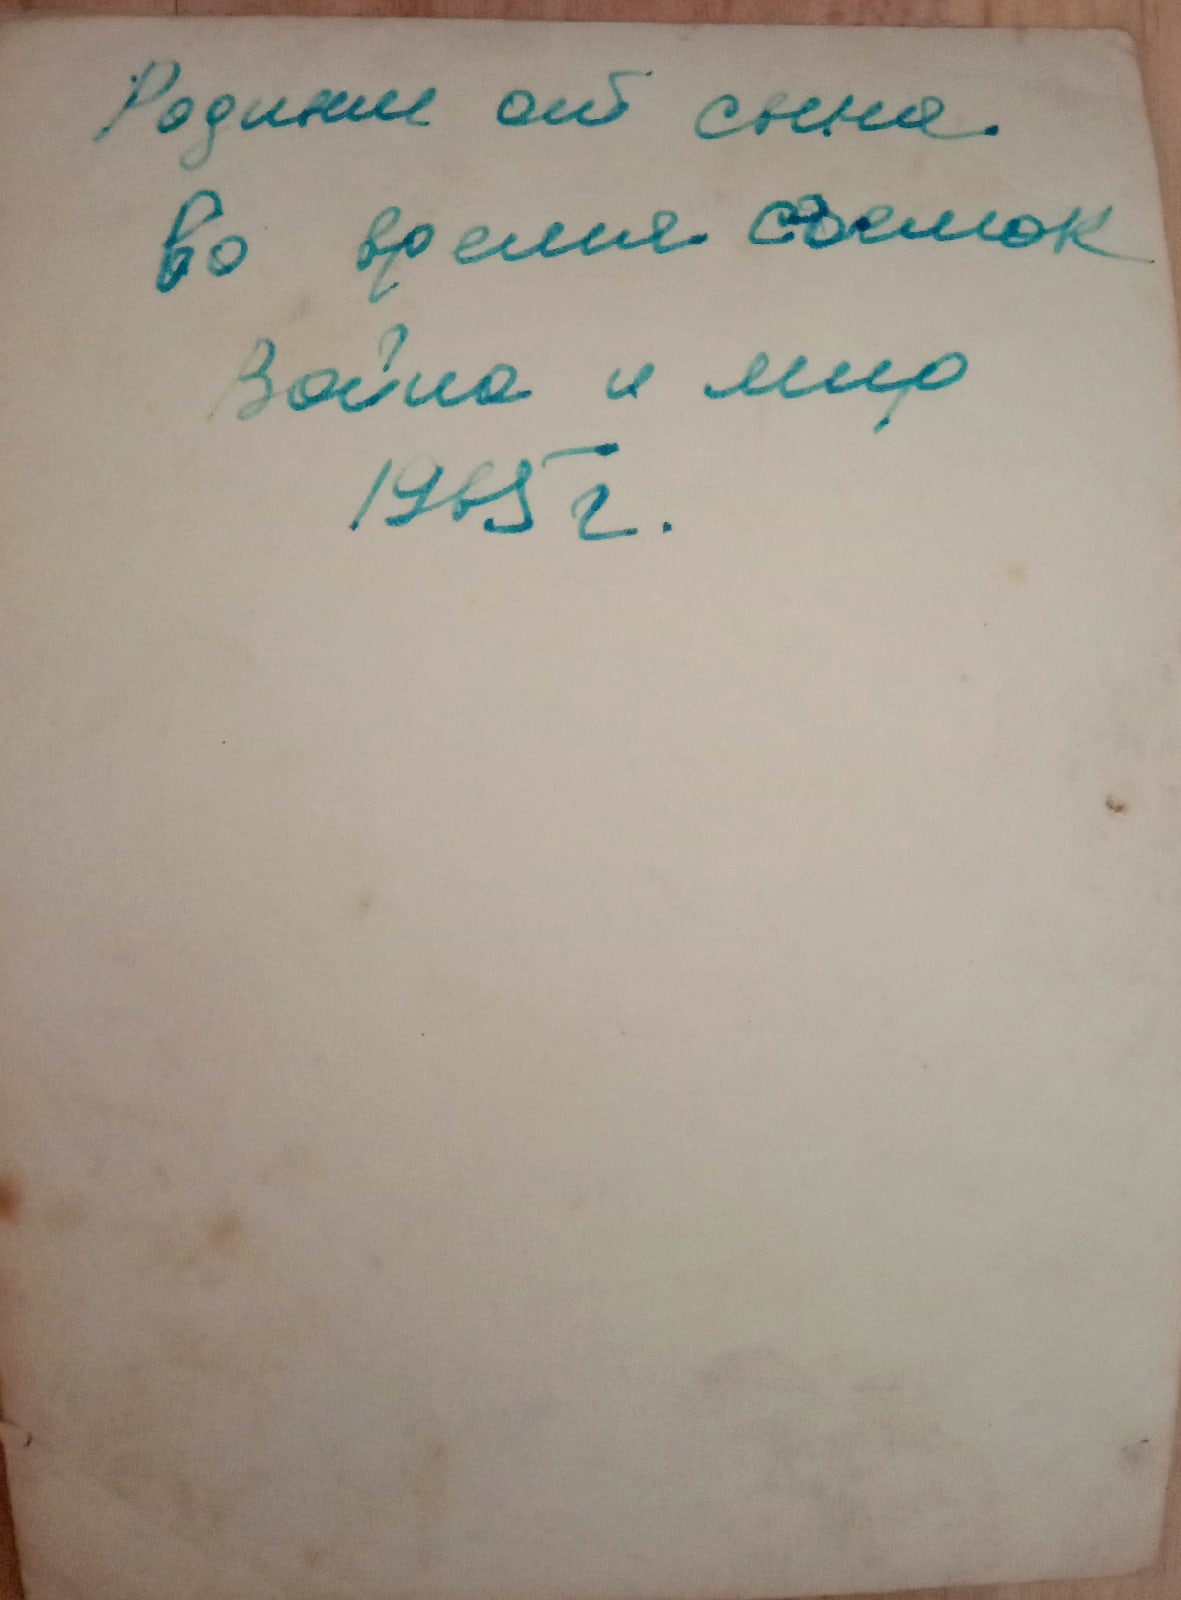 Родином от сына.
Во время съемок
Война и мир
1965 г.